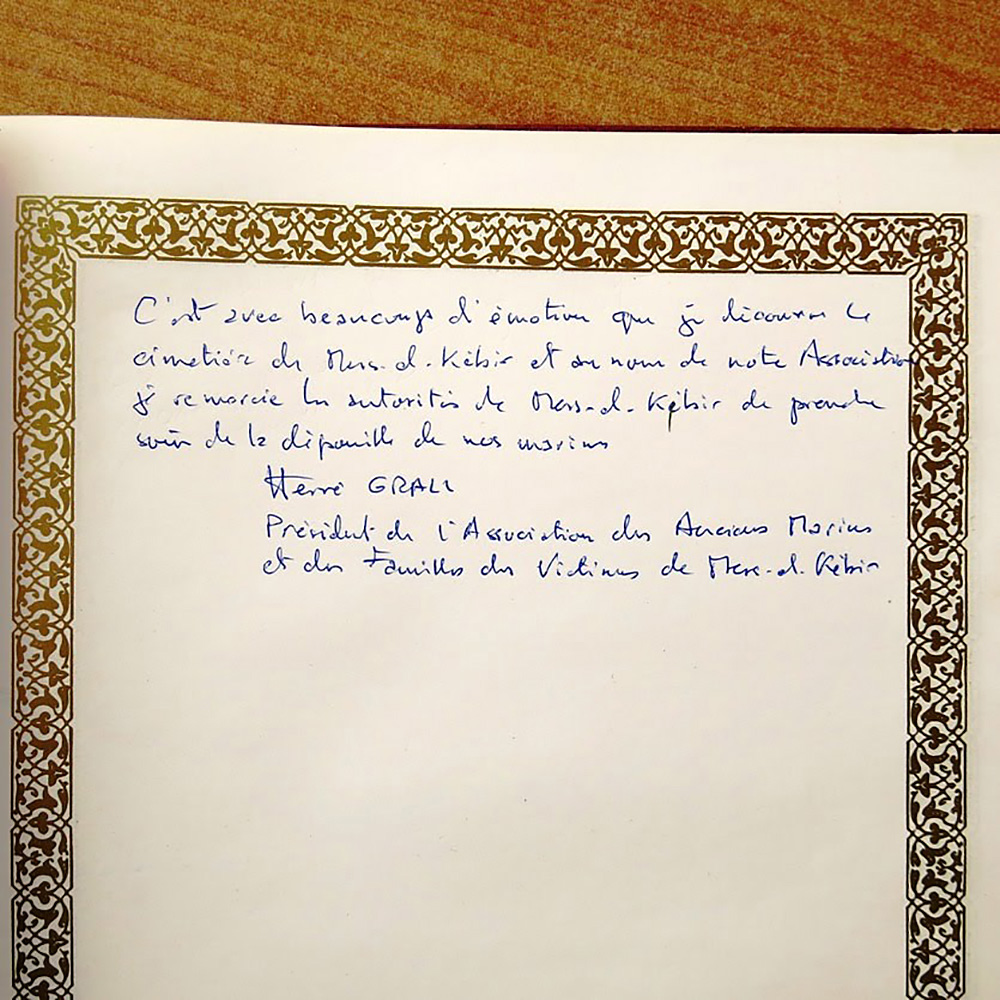 C'est avec beaucoup d'émotion que je découvre le
cimetière de Mers-el-Kébir et au nom de notre Association
je remercie les autorités de Mers-el-Kébir de prendre
soin de la dépouille de nos marins
Hervé GRALL
Président de l'Association des Anciens Marins
et des Familles des Victimes de Mers-el-Kébir